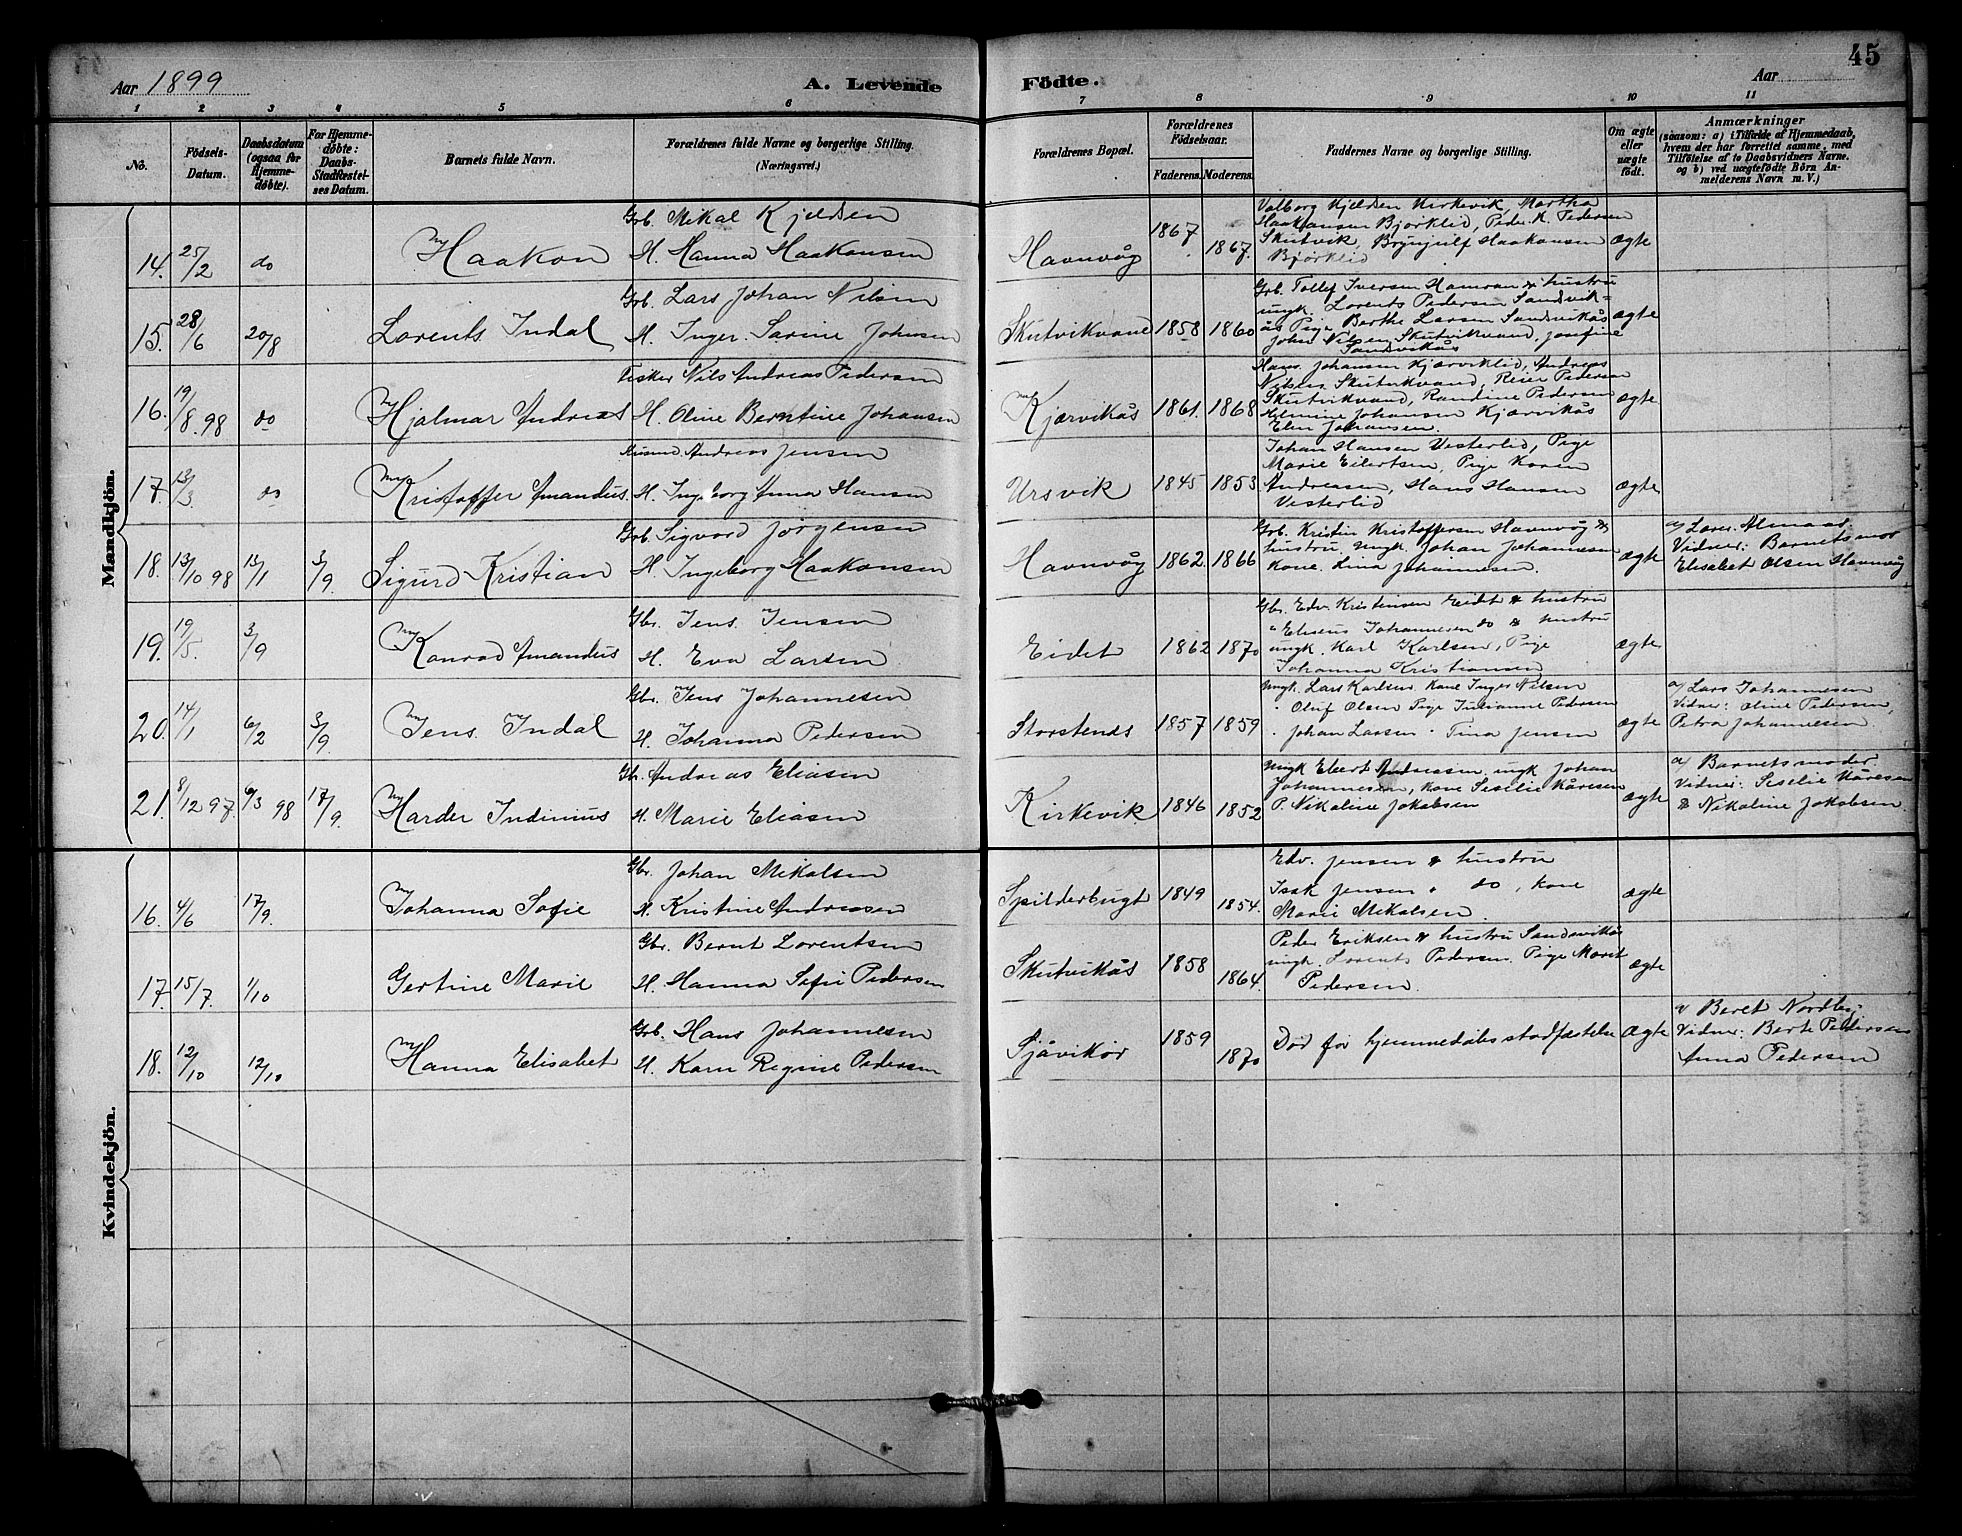 45
Aar 1899
A. Levende
Födte.
Aar
1 2 3 4 5 6 7 8 9 10 11
No.
Födsels-Datum.
Daabsdatum (ogsaa for Hjemmedøbte).
For Hjemmedøbte: Daabs-Stadfæstelses Datum.
Barnets fulde Navn.
Forældrenes fulde Navne og borgerlige Stilling. (Næringsvei.)
Forældrenes Bopæl.
Forældrenes Födselsaar.
Faderens. Moderens.
Faddernes Navne og borgerlige Stilling.
Om ægte eller uægte födt.
Anmærkninger
(saasom: a) i Tilfælde af Hjemmedaab, hvem der har forrettet samme, med Tilföielse af to Daabsvidners Navne. og b) ved uægtefödte Börn Anmelderens Navn m. V.)
Mandkjön.
14. 25/2 do Haakon
Grb. Mikal Kjeldsen
H. Hanna Haakonsen
Havnvåg 1867 1867.
Valborg Kjeldsen Kirkevik, Martha
Haakonsen Bjørklid, Peder K. Pedersen
Skutvik, Brynjulf Haakonsen
Bjørklid
ægte
15. 28/6 20/8 Lorents Indal
Grb. Lars Johan Nilsen
H. Inger Sarine Johnsen
Skutvikvand 1858 1860
Grb. Tollef Iversen Hamran & hustru
ungk. Lorents Pedersen Sandvik=
ås Pige Berthe Larsen Sandvikås
Johan Nilsen Skutvikvand, Josefine
Sandvikås
ægte
16. 19/8. 98 do Hjalmar Andreas
Fisker Nils Andreas Pedersen
H. Oline Berntine Johansen
Kjærvikås 1861. 1868
Hans Johansen Kjærviklid, Andreas
Nilsen Skutvikvand, Reier Pedersen
Skutvikvand, Randine Pedersen
Johansen Kjærvikås
Elen Johansen.
ægte
17. 13/3 do Kristoffer Amandus.
Andreas Jensen
H. Ingeborg Anna Hansen
Ursvik 1845 1853
Johan Hansen Vesterlid, Pige
Marie Eilertsen, Pige Karen
Andreasen, Hans Hansen
Vesterlid
ægte
18. 13/10 98 13/1 3/9 Sigurd Kristian
Grb Sigvard Jørgensen
H. Ingeborg Haakonsen
Havnvåg 1862. 1866
Grb. Kristin Kristoffersen Havnvåg &
hustru, ungk. Johan Johannesen
Kone. Lina Johannesen.
ægte
a/ Lærer Almaas.
Vidner: Barnets mor
Elisabet Olsen Havnvåg
19. 19/5. 3/9 Konrad Amandus
Gbr. Jens Jensen
H. Eva Larsen
Eidet 1862 1870
Gbr. Edv. Kristensen Eidet & hustru
" Eliseus Johannesen do & hustru
ungk. Karl Karlsen, Pige
Johanna Kristiansen
ægte
20. 14/1 6/2 3/9 Jens Indal
Gbr. Jens Johannesen
H. Johanna Pedersen
Storstends 1857 1859
Ungk. Lars Karlsen. Kone Inger Nilsen
" Oluf Olsen Pige Julianne Pedersen
" Johan Larsen " Tina Jensen
ægte
a/ Lars Johannesen
Vidner: Oline Pedersen,
Petra Johannesen.
21. 8/12 97. 6/3 98 17/9. Harder Indinius
Gbr. Andreas Eliasen
H. Marie Eliasen
Kirkevik 1846 1852
Ungk Elert Andreasen, ungk Johan
Johannesen, Kone Sesilie Kåresen
P. Nikoline Jakobsen
ægte
a/ Barnets moder
Vidner: Sesilie Kåresen
& Nikoline Jakobsen.
Kvindekjön.
16. 4/6 17/9. Johanna Sofie
Gbr. Johan Mikalsen
H. Kristine Andreasen
Spilderbugt 1849 1854.
Edv. Jensen & hustru
Isak Jensen " do, kone
Marie Mikalsen.
ægte
17. 15/7. 1/10 Gertine Marie
Gbr. Bernt Lorentsen
H. Hanna Sofie Pedersen
Skutvikås 1858 1864.
Peder Eriksen & hustru Sandvikås
ungk. Lorents Pedersen. Pige Marit
Pedersen.
ægte
18. 12/10 12/10 Hanna Elisabet
Grb. Hans Johannesen
H. Karn Regine Pedersen
Sjåvikør 1859 1870
Død før hjemmedåbs stadfæstelse
Ægte
a/ Beret Nordby
Vidner: Berte Pedersen
Anna Pedersen